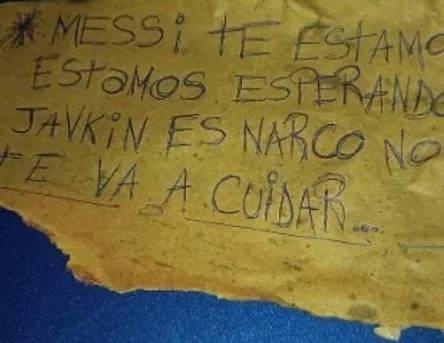 * MESSI TE ESTAMO
ESTAMOS ESPERANDO
JAVKIN ES NARCO NO
TE VA A CUIDAR...